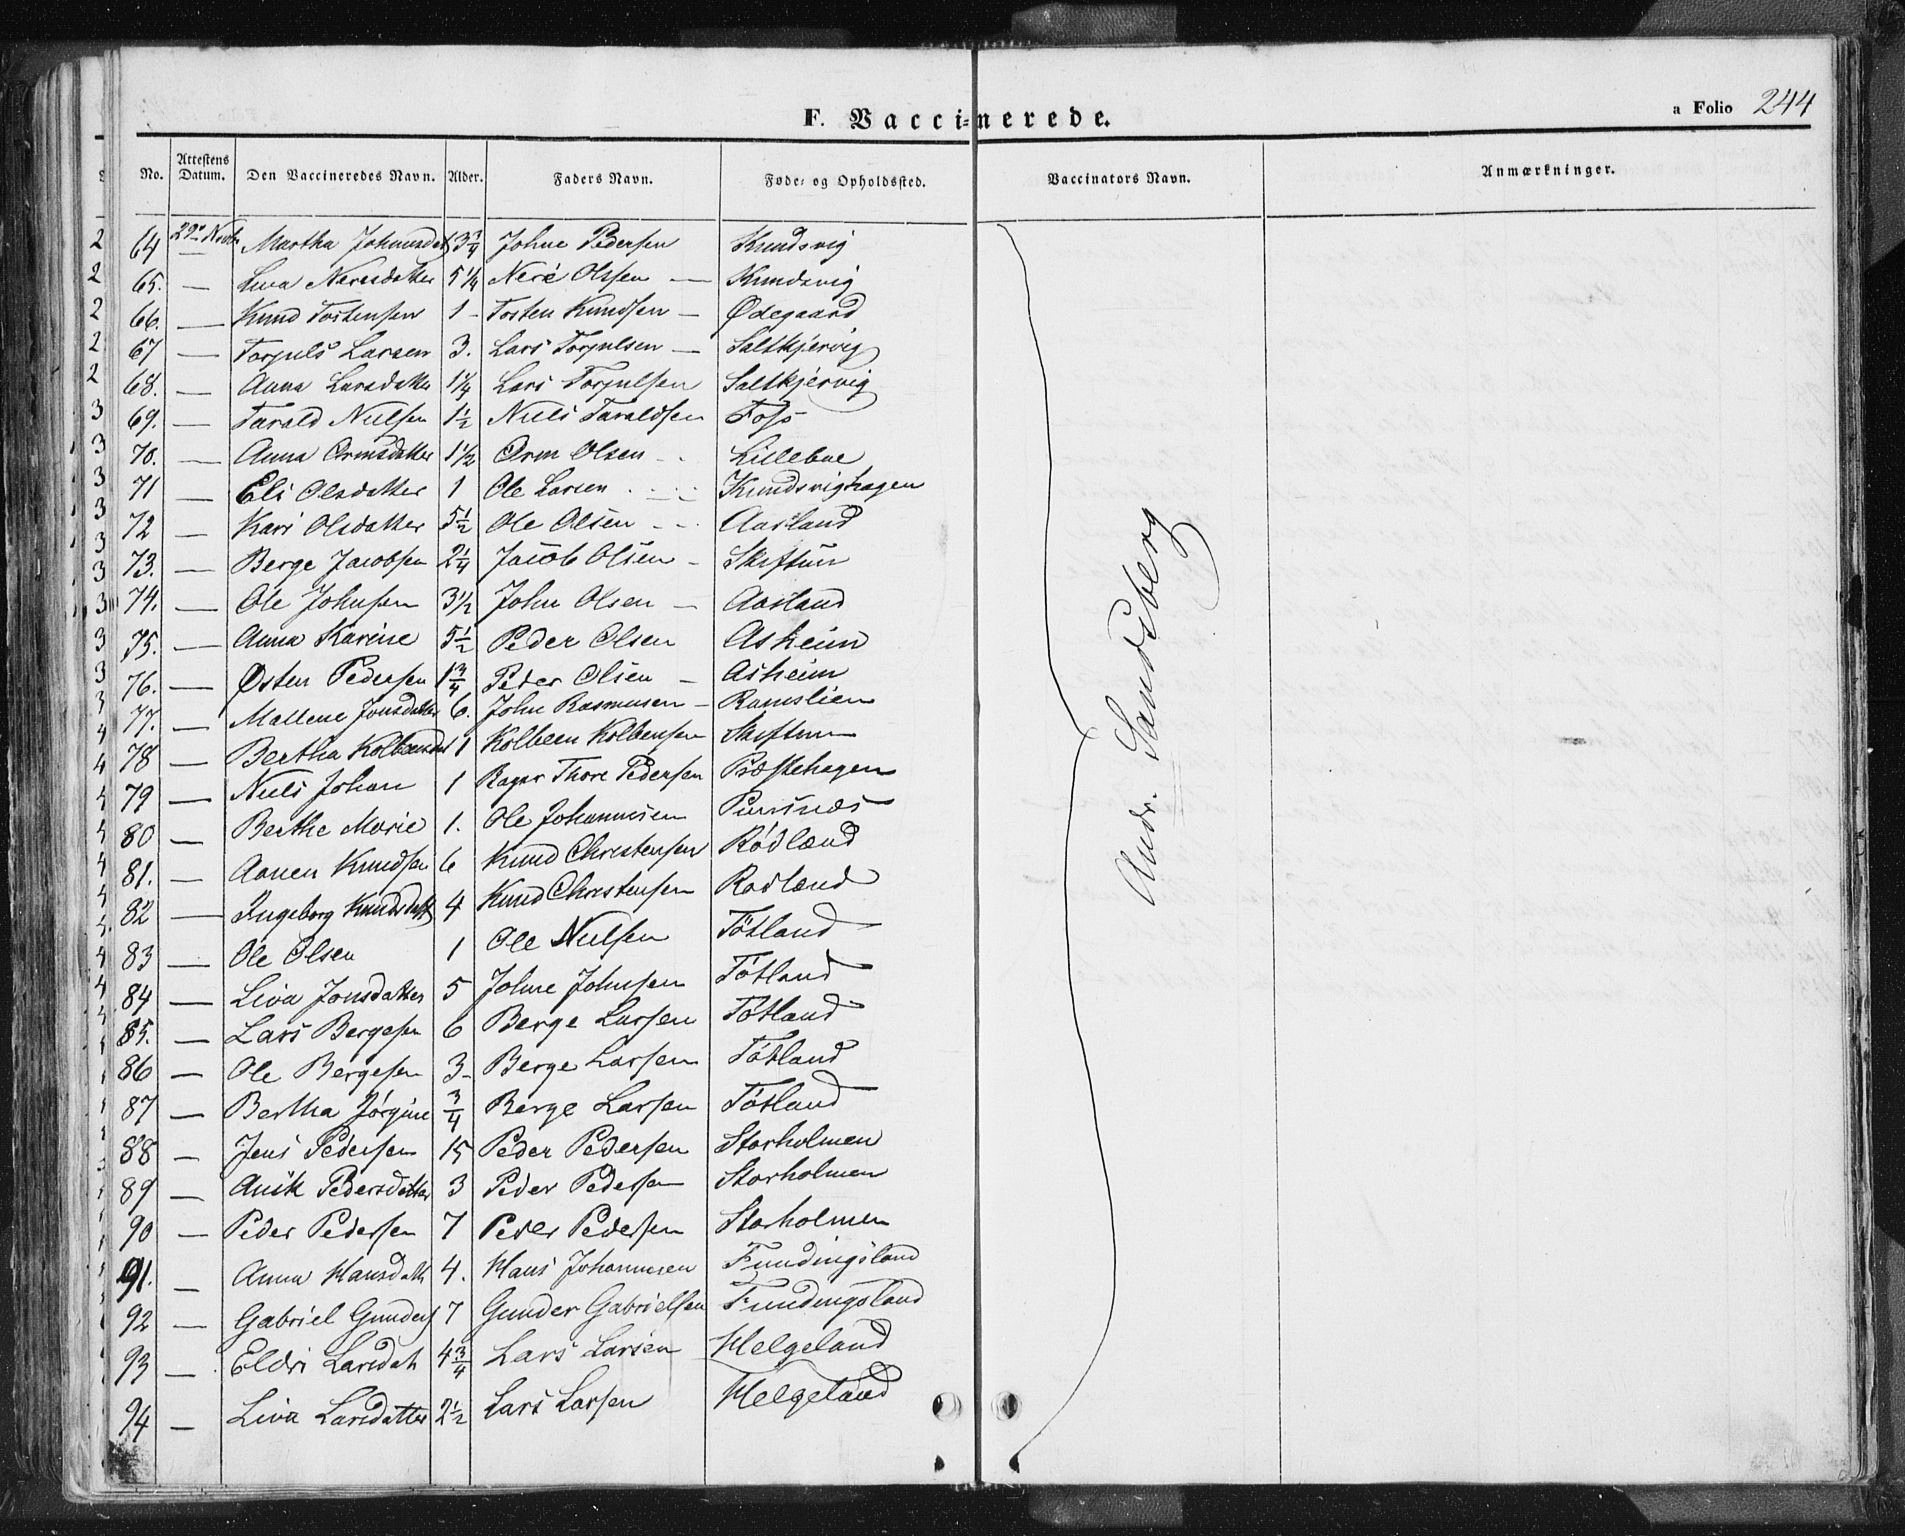 F. Vaccinerede.
a Folio 244
No. Attestens Datum. Den Vaccineredes Navn. Alder. Faders Navn. Føde- og Opholdssted. Vaccinators Navn. Anmærkninger.
64 29de Novbr Martha Johnnesdat 3 3/4 Johne Pedersen Knudsvig
65. — Liva Neresdatter 5 1/4 Nere Olssen — Knudsvig
66. — Knud Tostensen 1 - Tosten Knudsen — Ødegaard
67 — Torjuls Larsen 3. Lars Torjulsen — Saltkjervig
68. — Anna Larsdatter 1 1/4 Lars Torjulsen Saltkjervig
69. — Tarald Nielsen 1 1/2 Niels Taraldsen Foss
70. — Anna Ormsdatter 1 1/2 Orm Olsen Lillebue
71 — Eli Olsdatter 1 Ole Larsen Knudsvighagen
72 — Kari Olsdatter 5 1/2 Ole Olsen Aasland
73. — Berge Jacobsen 2 1/4 Jacob Olsen - Skiftun
74. — Ole Johnsen 3 1/2 John Olsen — Aasland
75. — Anna Karine 5 1/2 Peder Olsen Asheim
76. — Østen Pedersen 1 3/4 Peder Olsen — Asheim
77. — Mallene Jonsdatter 6. John Rasmusen — Ramslien
78 — Bertha Kolbeensdr 1 Kolbeen Kolbensen Skiftun
79 — Niels Johan 1 Thore Pedersen Præstehagen
80 — Berthe Marie 1. Ole Johannesen
81. — Aanen Knudsen 6 Knud Christensen Rødland
82 — Ingeborg Knudsdatt 4 Knud Christensen Rødland
83 — Ole Olsen 1 Ole Nielsen Tøtland
84 — Liva Jonsdatter 5 Johne Johnsen Tøtland
85. — Lars Bergesen 6 Berge Larsen Tøtland
86 — Ole Bergesen 3 - Berge Larsen Tøtland
87 — Bertha Jørgine 3/4 Berge Larsen Tøtland
88 — Jens Pedersen 15 Peder Pedersen Storholmen
89 — Anik Pedersdatter 3 Peder Pedersen Storholmen
90 — Peder Pedersen 7 Peder Pedersen Storholmen
91. — Anna Hansdatt 4. Hans Johannesen Fundingsland
92 — Gabriel Gunders 7 Gunder Gabrielsen Fundingsland
93 — Eldri Larsdat 4 3/4 Lars Larsen Helgeland
94 — Liva Larsdatter 2 1/2 Lars Larsen Helgeland
Andr. Sandsberg